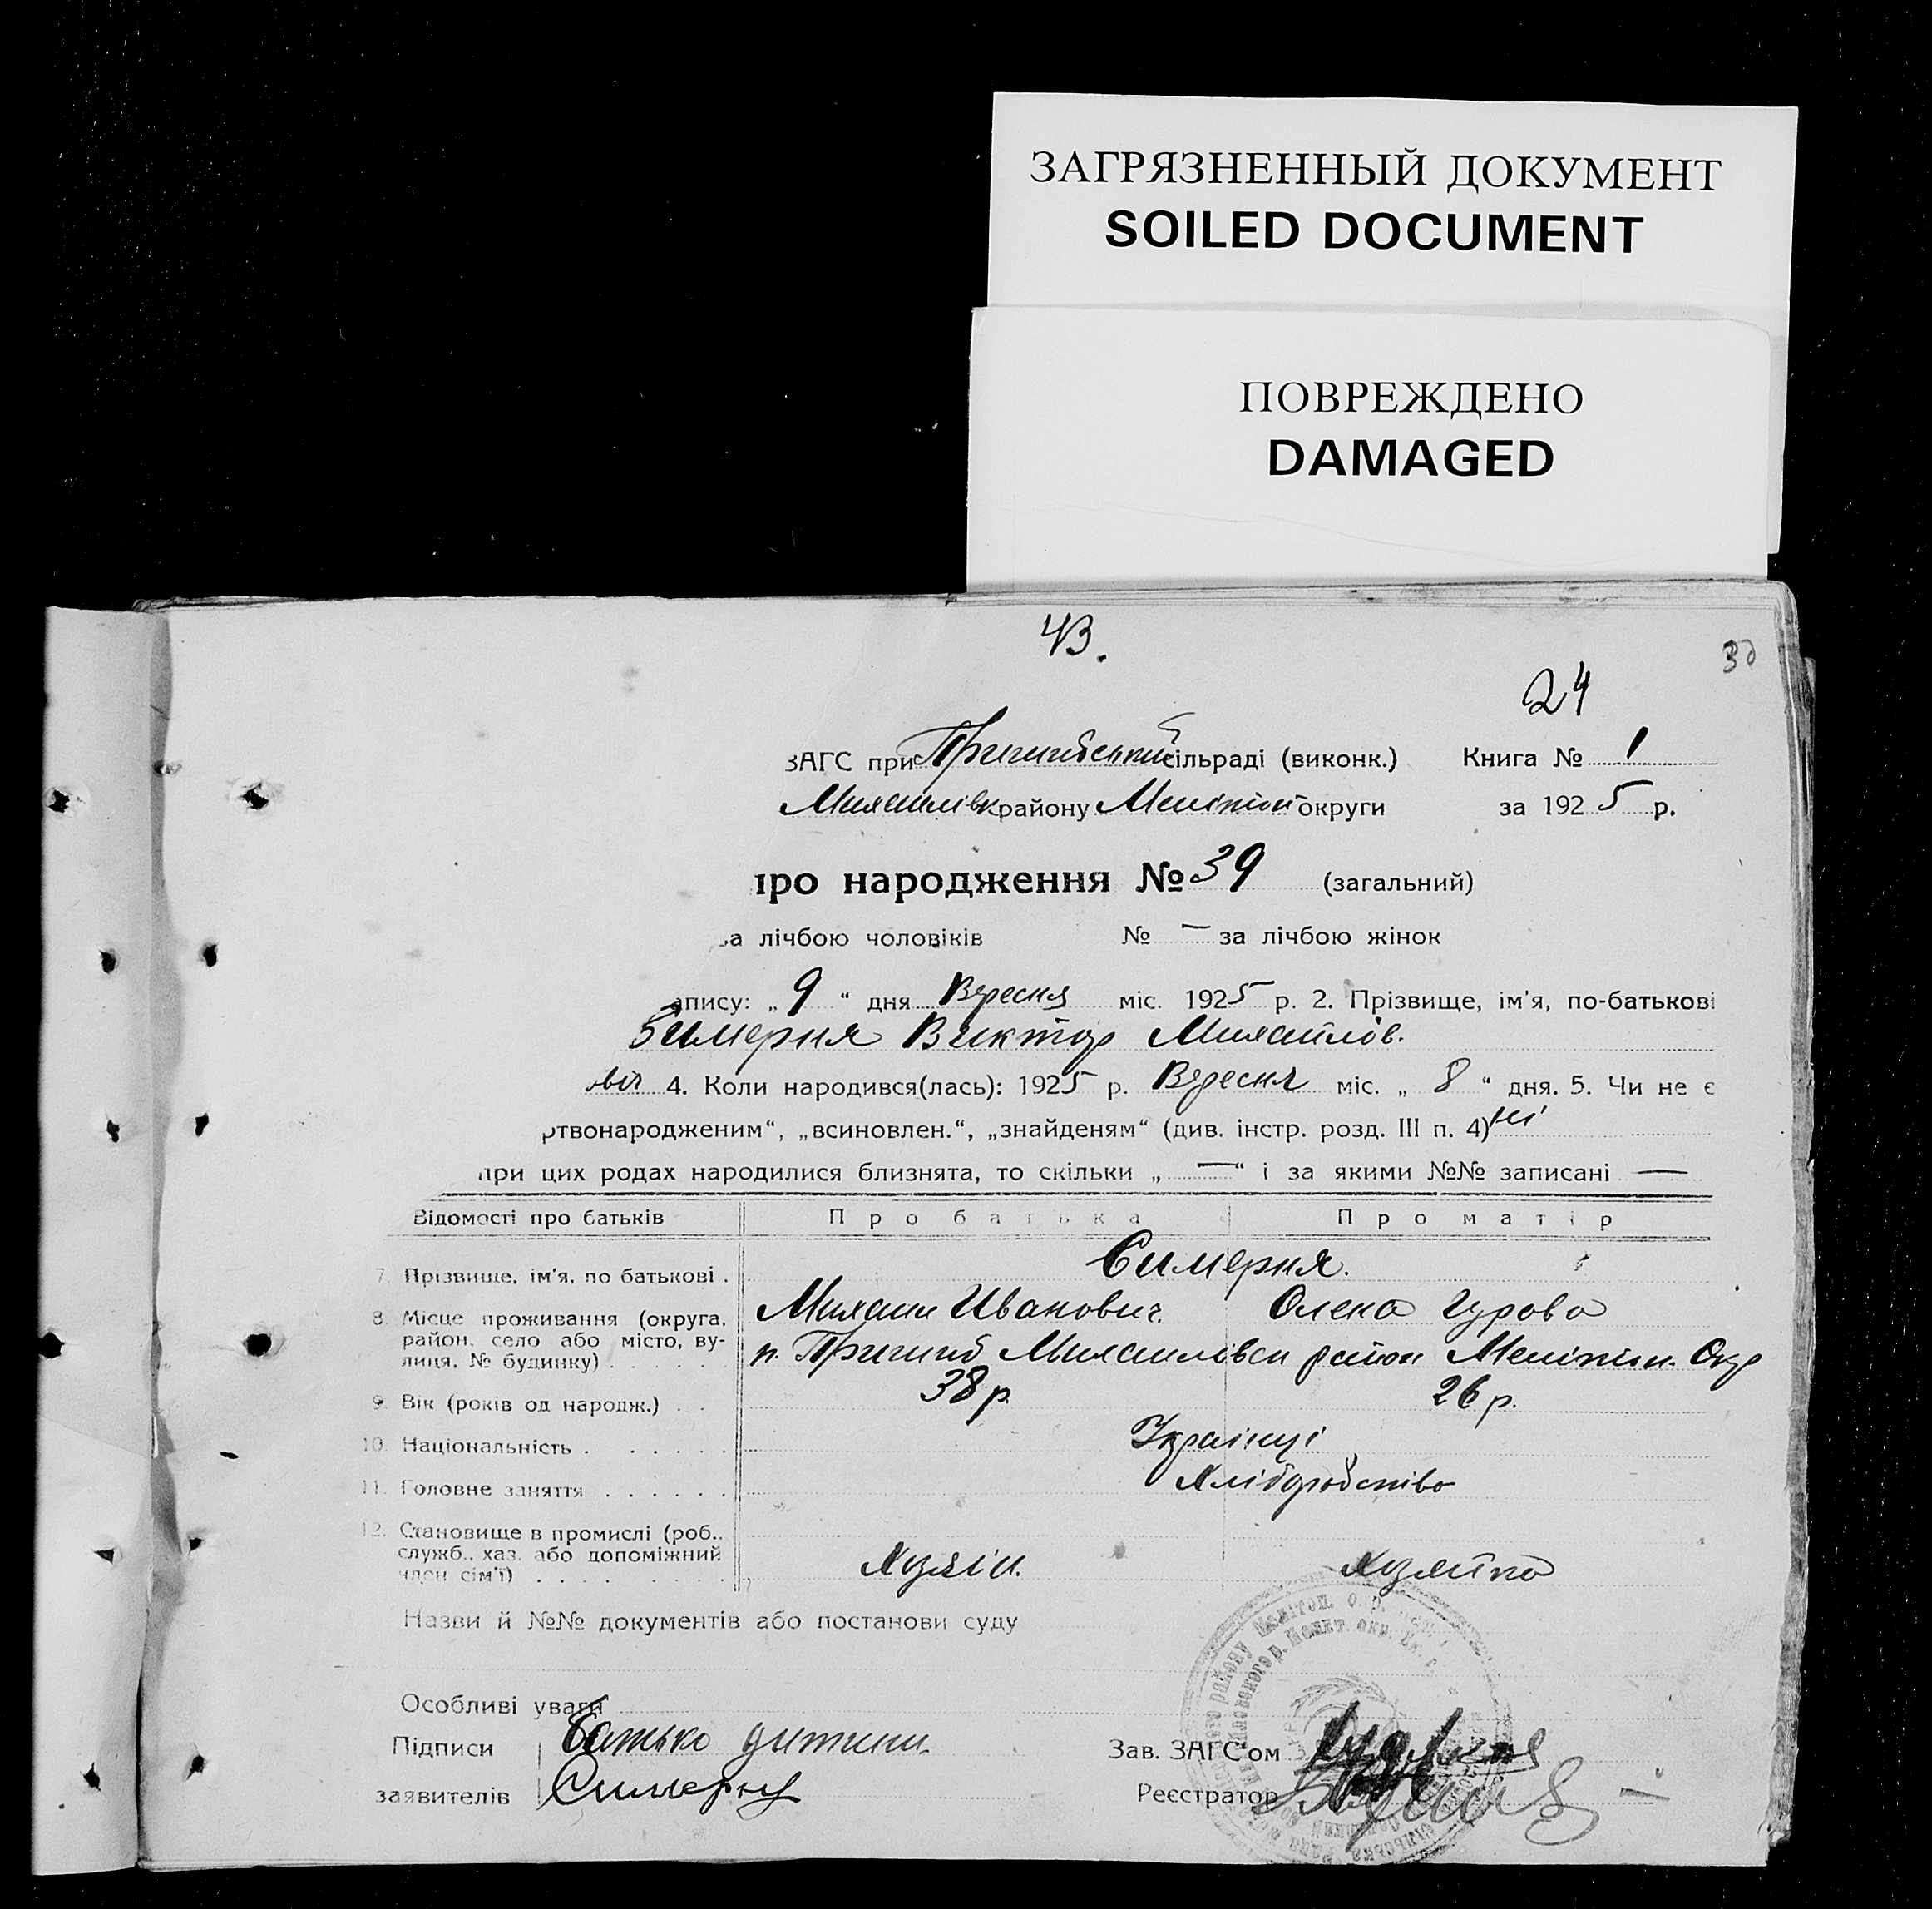 ЗАГРЯЗНЕННЫЙ ДОКУМЕНТ
SOILED DOCUMENT
ПОВРЕЖДЕНО
DAMAGED
43.
24
ЗАГС при сільраді (виконк.) Книга № 1
району округи за 1925 р.
про народження № 39 (загальний)
за лічбою чоловіків № — за лічбою жінок
апису: „ 9 “ дня Вересня міс. 1925 р. 2. Прізвище, ім'я, по-батькові
Симерня Виктор Михайлов.
4. Коли народився(лась): 1925 р. Вересня міс. „ 8 “ дня. 5. Чи не є
ртвонародженим“, „всиновлен.“, „знайденям“ (див. інстр. розд. III п. 4) ні
при цих родах народилися близнята, то скільки „ — “ і за якими №№ записані —
Відомості про батьків Про батька Про матір
7. Прізвище, ім'я, по батькові . Симерня.
Михаил Иванович. Олена Гурова
8. Місце проживання (округа,
район, село або місто, ву-
лиця, № будинку) район Мелітоп. Окр
9. Вік (років од народж.) . . 38 р. 26 р.
10. Національність . . . . . . Українці
11. Головне заняття . . . . . . Хліборобство
12. Становище в промислі (роб.,
служб., хаз. або допоміжний
член сім'ї) . . . . Хузяїн. Хузяйка
Назви й №№ документів або постанови суду
Особливі уваги
Підписи Батько дитини
заявителів Симерня
Зав. ЗАГС'ом
Реєстратор